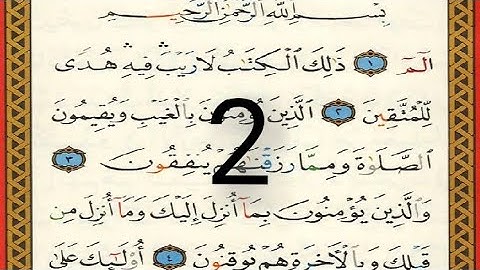 بِسْمِ ٱللَّهِ ٱلرَّحْمَٰنِ ٱلرَّحِيمِ
الٓمٓ ١ ذَٰلِكَ ٱلْكِتَٰبُ لَا رَيْبَ ۛ فِيهِ ۛ هُدًى
لِّلْمُتَّقِينَ ٢ ٱلَّذِينَ يُؤْمِنُونَ بِٱلْغَيْبِ وَيُقِيمُونَ
2
ٱلصَّلَوٰةَ وَمِمَّا رَزَقْنَٰهُمْ يُنفِقُونَ ٣
وَٱلَّذِينَ يُؤْمِنُونَ بِمَآ أُنزِلَ إِلَيْكَ وَمَآ أُنزِلَ مِن
قَبْلِكَ وَبِٱلْءَاخِرَةِ هُمْ يُوقِنُونَ ٤ أُو۟لَٰٓئِكَ عَلَىٰ